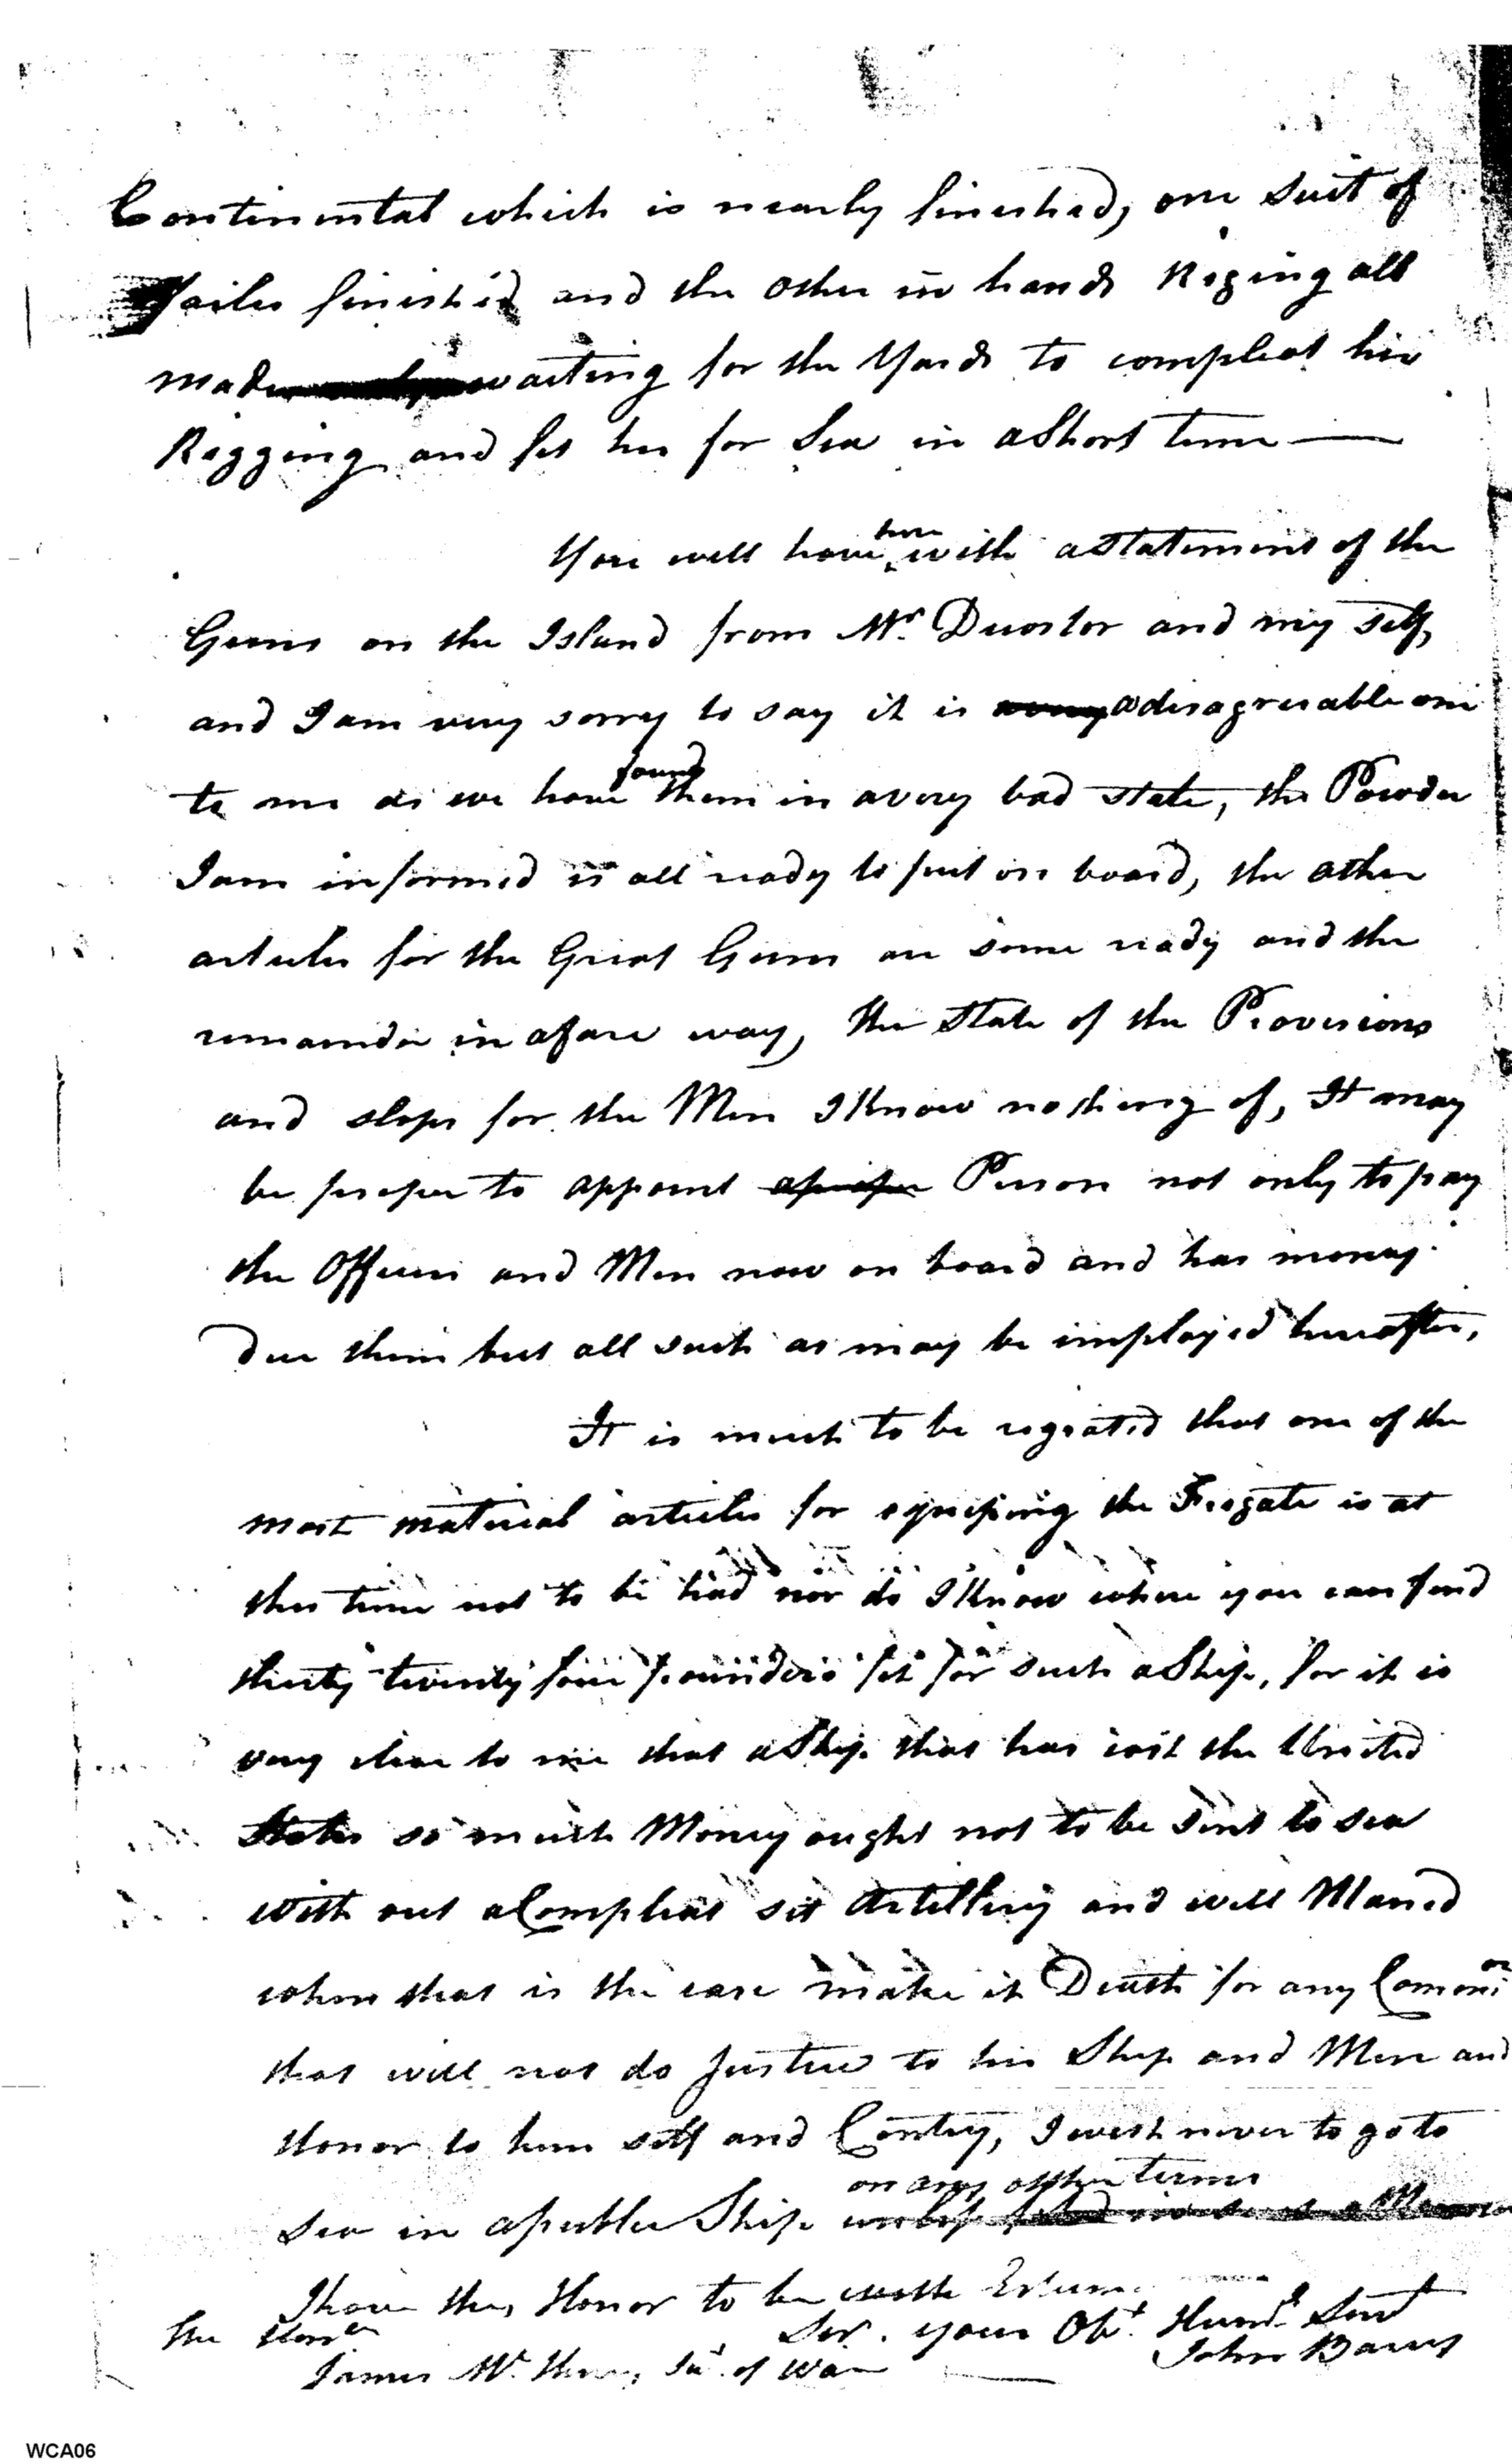 Continental which is nearly finished, one suit of
Sailes finished and the other in hand Riging all
made waiting for the Yards to compleat her
Rigging and fit her for Sea in a Short time —
You will have here with a Statement of the
Guns on the Island from Mr. Duostor and my self,
and I am very sorry to say it is a very a disagreeable one
to me as we have found them in a very bad state, the Powder
I am informed is all ready to put on board, the other
articles for the Great Guns are some ready and the
remainder in a fare way, the State of the Provisions
and slops for the Men I Know nothing of, It may
be proper to appoint a proper Person not only to pay
the Officers and Men now on board and has money
due them but all such as may be imployed hereafter,
It is much to be regrated that one of the
most material articles for equiping the Frigate is at
this time not to be had nor do I Know where you can find
thirty twenty four pounders fit for such a Ship, for it is
very clear to me that a Ship that has cost the United
States so much Money ought not to be sent to sea
with out a Compleat set Artillery and well Maned
when that is the case make it Death for any
that will not do Justice to his Ship and Men and
Honor to him self and Contry, I wish never to go to
on any other terms
Sea in a publee Ship unless
I have the Honor to be with Esteem
The Honble Sir. your Obt. Humbl Servt
James Mc. Henry, Secy of War — John Barry
WCA06